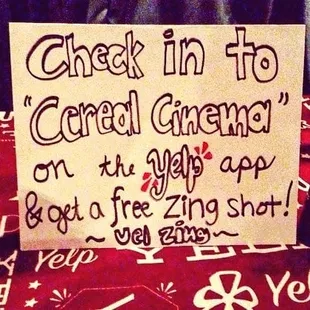 Check in to
"Cereal Cinema"
on the yelp app
& get a free Zing shot!
~ Vel Zing ~
Yelp
Yelp